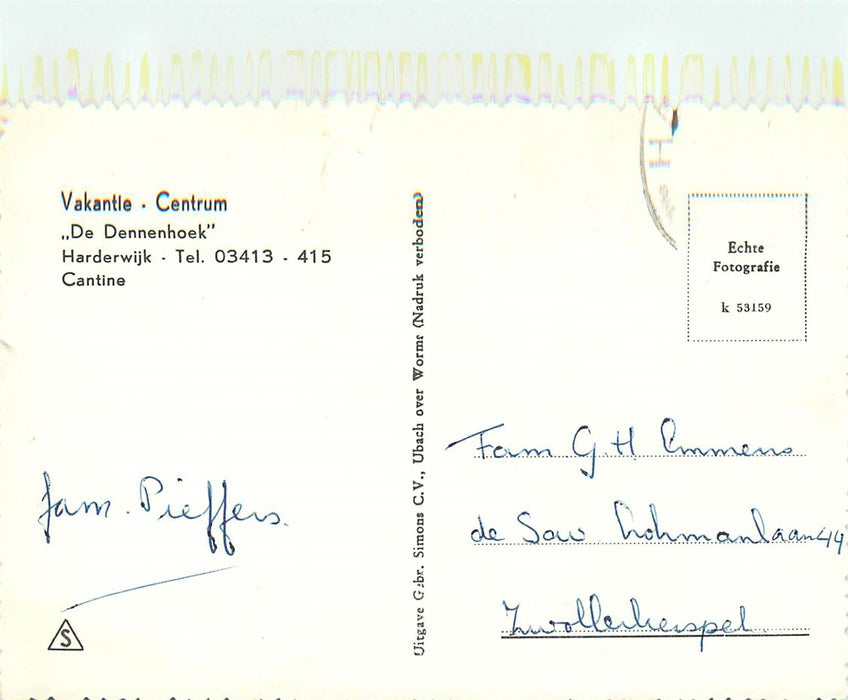 Vakantie - Centrum
„De Dennenhoek”
Harderwijk - Tel. 03413 - 415
Cantine
Fam. Pieffers.
S
Uitgave Gebr. Simons C.V., Ubach over Worms (Nadruk verboden)
HA
Echte
Fotografie
k 53159
Fam G.H Emmens
de Sav Lohmanlaan 44
Zwollerkerspel